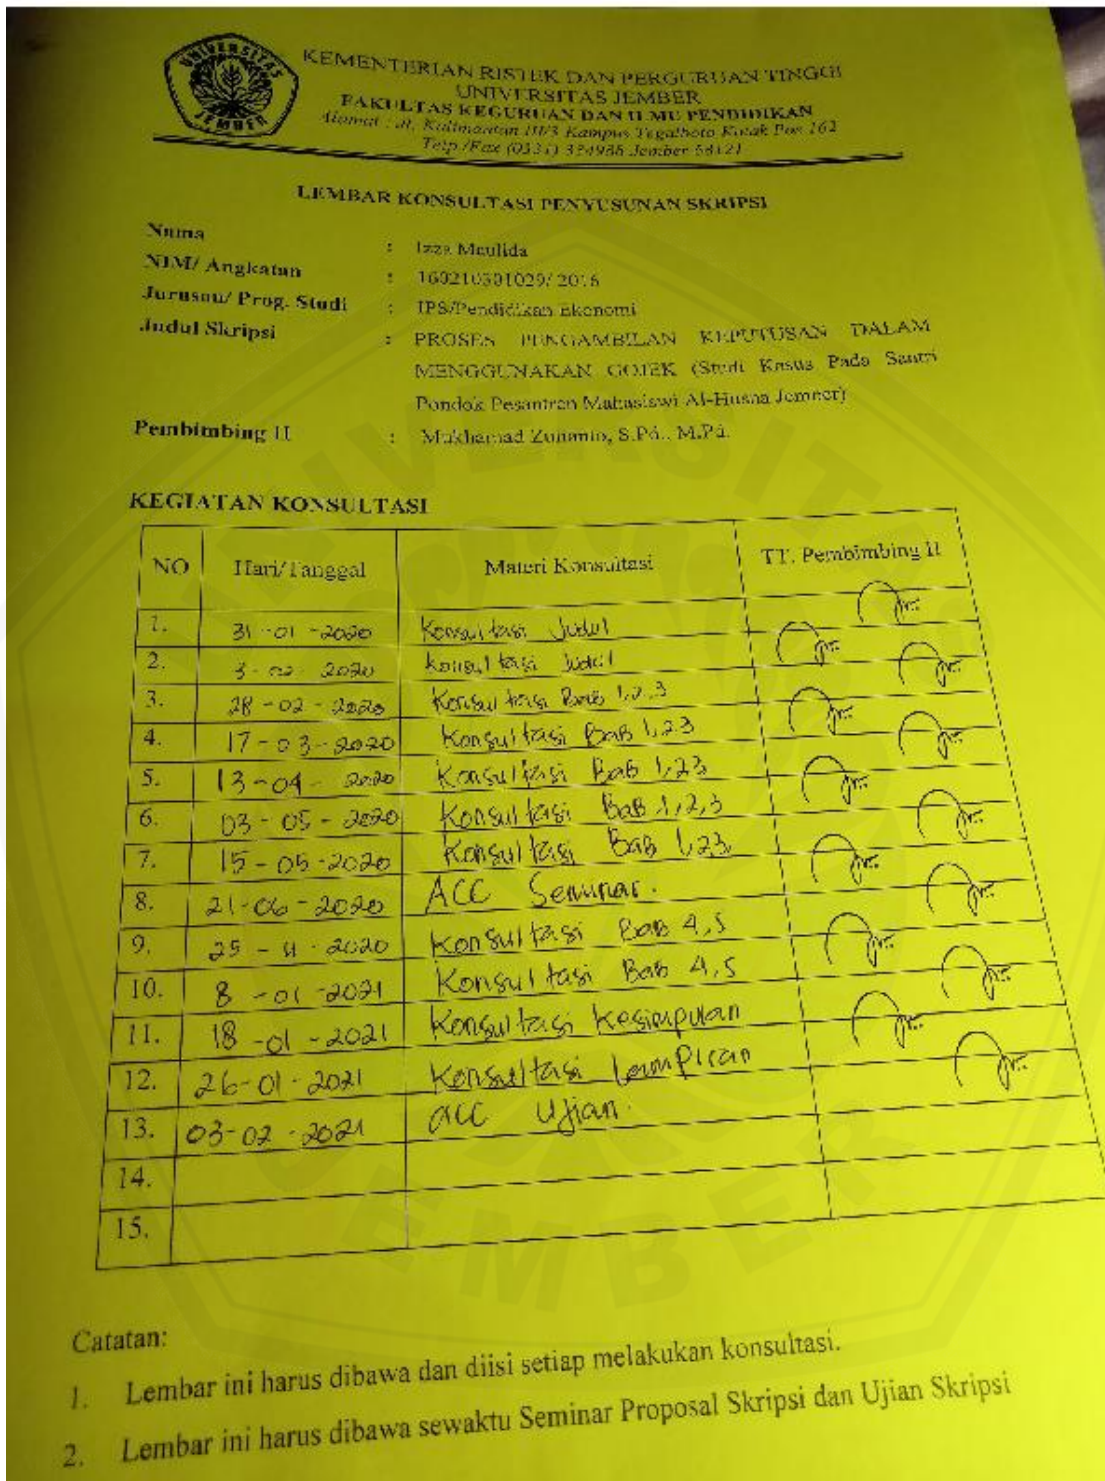 UNIVERSITAS JEMBER
KEMENTERIAN RISTEK DAN PERGURUAN TINGGI
UNIVERSITAS JEMBER
FAKULTAS KEGURUAN DAN ILMU PENDIDIKAN
Alamat : Jl. Kalimantan III/3 Kampus Tegalboto Kotak Pos 162
Telp./Fax (0331) 334988 Jember 68121
LEMBAR KONSULTASI PENYUSUNAN SKRIPSI
Nama : Izza Maulida
NIM/ Angkatan : 160210301029/ 2016
Jurusan/ Prog. Studi : IPS/Pendidikan Ekonomi
Judul Skripsi : PROSES PENGAMBILAN KEPUTUSAN DALAM
MENGGUNAKAN GOJEK (Studi Kasus Pada Santri
Pondok Pesantren Mahasiswi Al-Husna Jember)
Pembimbing II : Mukhamad Zulianto, S.Pd., M.Pd.
KEGIATAN KONSULTASI
NO Hari/Tanggal Materi Konsultasi TT. Pembimbing II
1. 31-01-2020 Konsultasi Judul
2. 3-02-2020 Konsultasi Judul
3. 28-02-2020 Konsultasi Bab 1,2,3
4. 17-03-2020 Konsultasi Bab 1,2 3
5. 13-04-2020 Konsultasi Bab 1,2 3
6. 03-05-2020 Konsultasi Bab 1,2,3
7. 15-05-2020 Konsultasi Bab 1,2 3
8. 21-06-2020 ACC Seminar.
9. 25-11-2020 Konsultasi Bab 4,5
10. 8-01-2021 Konsultasi Bab 4,5
11. 18-01-2021 Konsultasi Kesimpulan
12. 26-01-2021 Konsultasi Lampiran
13. 03-02-2021 acc Ujian.
14.
15.
Catatan:
1. Lembar ini harus dibawa dan diisi setiap melakukan konsultasi.
2. Lembar ini harus dibawa sewaktu Seminar Proposal Skripsi dan Ujian Skripsi